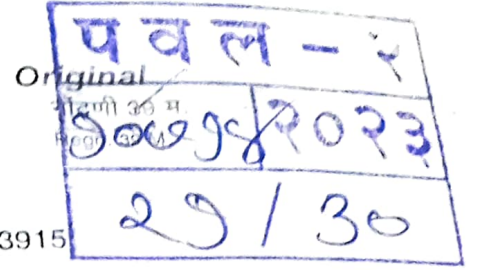 पवल - २
Original
नोंदणी 39 म.
Regn. 39 M
१०७१४ २०२३
२१ / ३०
3915